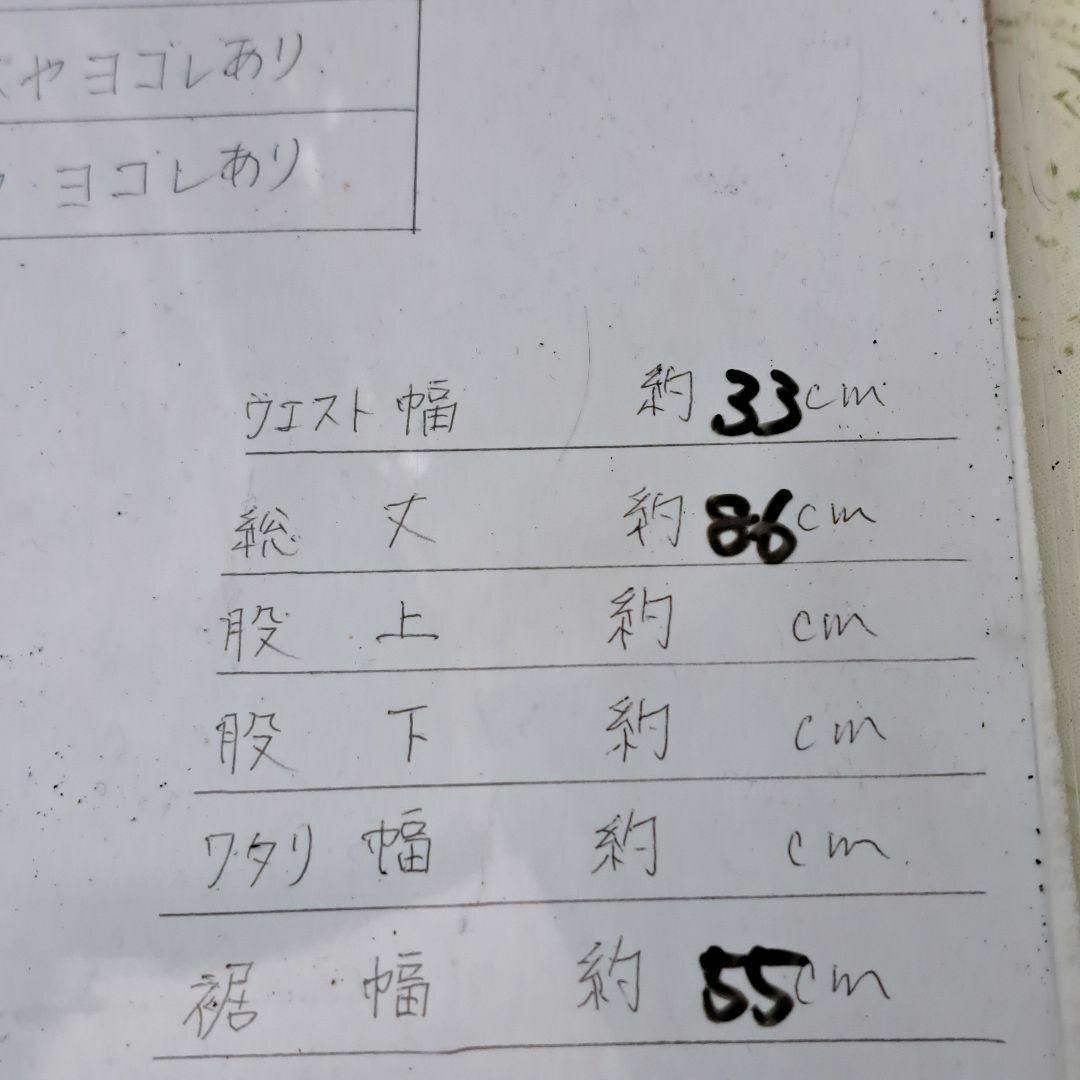 ヤヨゴレあり
ヨゴレあり
ウエスト幅 約33cm
総丈 約86cm
股上 約 cm
股下 約 cm
ワタリ幅 約 cm
裾幅 約55cm